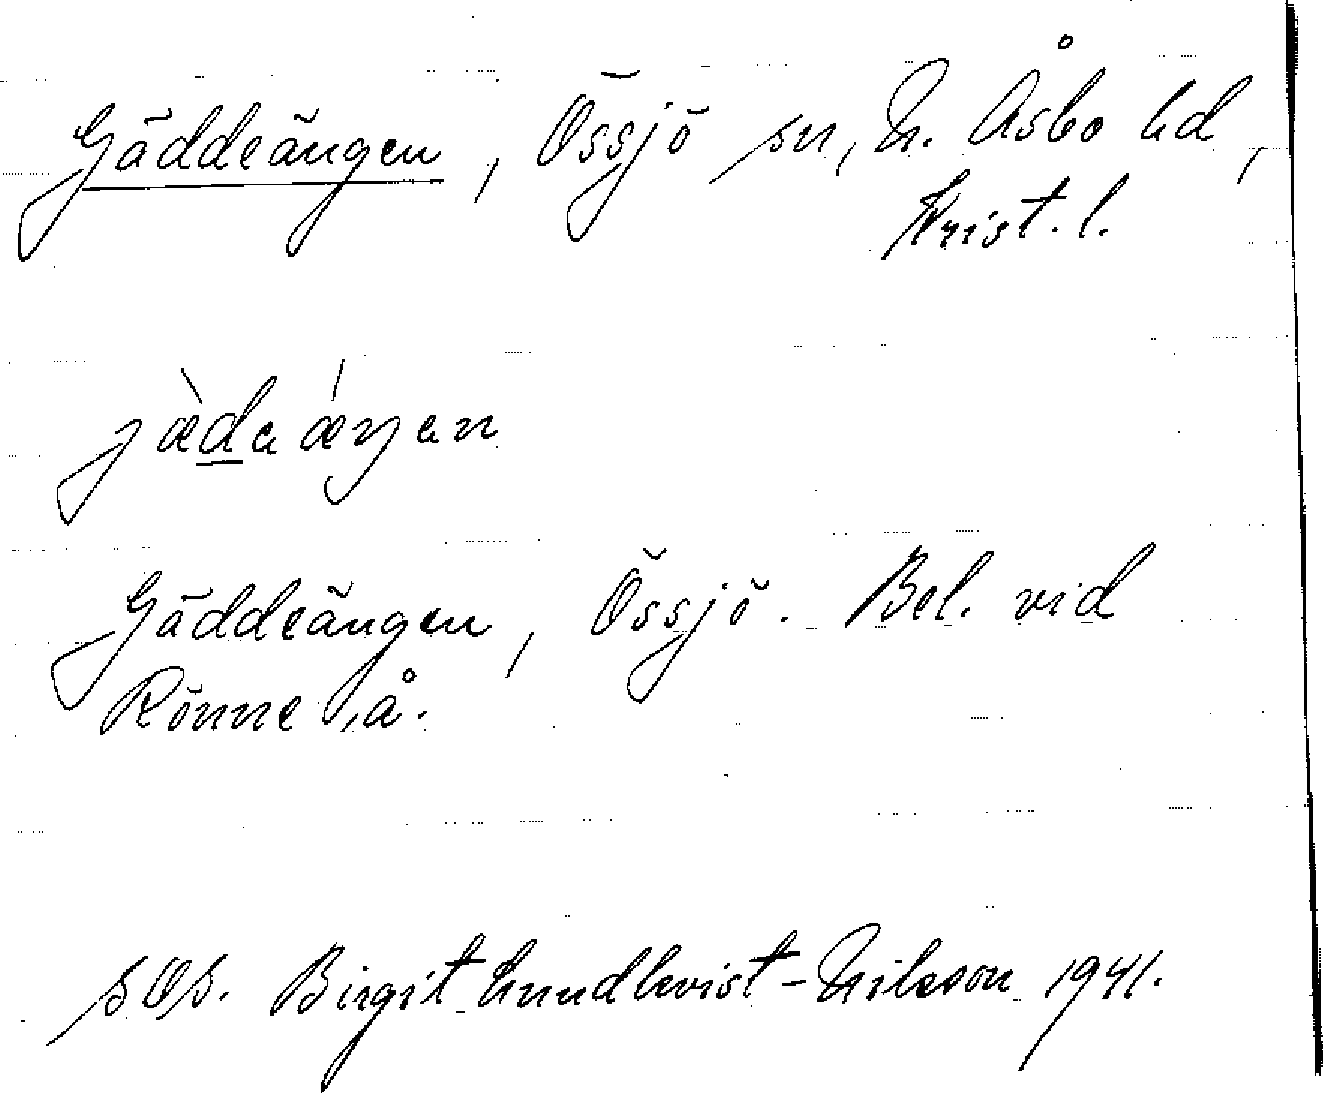 Gäddeängen, Össjö sn, N. Åsbo hd,
Krist. l.
jæ̀daǽŋen
Gäddeängen, Össjö. Bel. vid
Rönne å.
Birgit Lundkvist-Nilsson 1941.